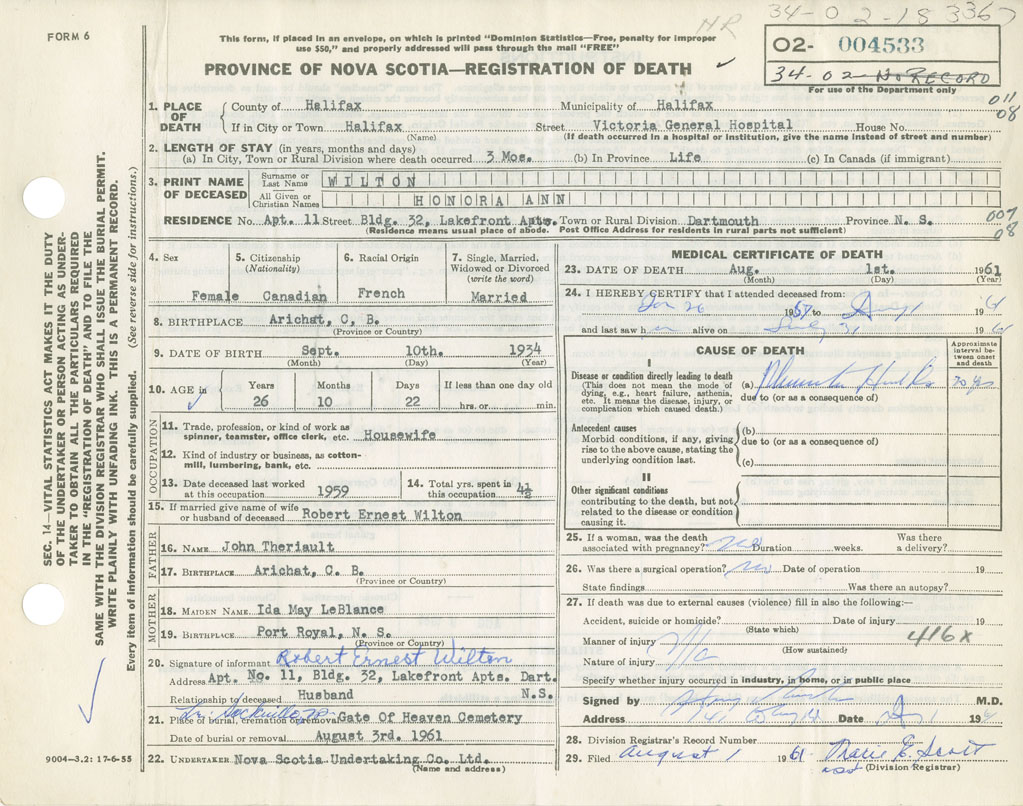 FORM 6
This form, if placed in an envelope, on which is printed "Dominion Statistics—Free, penalty for improper
use $50," and properly addressed will pass through the mail "FREE"
PROVINCE OF NOVA SCOTIA—REGISTRATION OF DEATH
HR
34-02-18 3367
02- 004533
34-02-NO RECORD
For use of the Department only
011
08
1. PLACE OF DEATH
County of Halifax Municipality of Halifax
If in City or Town Halifax Street Victoria General Hospital House No.
(Name) (If death occurred in a hospital or institution, give the name instead of street and number)
2. LENGTH OF STAY (in years, months and days)
(a) In City, Town or Rural Division where death occurred 3 Mos. (b) In Province Life (c) In Canada (if immigrant)
3. PRINT NAME OF DECEASED
Surname or Last Name WILTON
All Given or Christian Names HONORA ANN
RESIDENCE No. Apt. 11 Street Bldg. 32, Lakefront Apts. Town or Rural Division Dartmouth Province N. S.
(Residence means usual place of abode. Post Office Address for residents in rural parts not sufficient)
007
08
4. Sex Female
5. Citizenship (Nationality) Canadian
6. Racial Origin French
7. Single, Married, Widowed or Divorced (write the word) Married
8. BIRTHPLACE Arichat, C. B.
(Province or Country)
9. DATE OF BIRTH Sept. 10th. 1934
(Month) (Day) (Year)
10. AGE in Years Months Days If less than one day old
26 10 22 hrs. or min.
OCCUPATION
11. Trade, profession, or kind of work as
spinner, teamster, office clerk, etc. Housewife
12. Kind of industry or business, as cotton-
mill, lumbering, bank, etc.
13. Date deceased last worked at this occupation 1959
14. Total yrs. spent in this occupation 4½
15. If married give name of wife
or husband of deceased Robert Ernest Wilton
FATHER
16. NAME John Theriault
17. BIRTHPLACE Arichat, C. B.
(Province or Country)
MOTHER
18. MAIDEN NAME Ida May LeBlance
19. BIRTHPLACE Port Royal, N. S.
(Province or Country)
20. Signature of informant Robert Ernest Wilton
Address Apt. No. 11, Bldg. 32, Lakefront Apts. Dart.
Relationship to deceased Husband N.S.
21. Place of burial, cremation or removal Gate Of Heaven Cemetery
Date of burial or removal August 3rd. 1961
22. UNDERTAKER Nova Scotia Undertaking Co. Ltd.
(Name and address)
MEDICAL CERTIFICATE OF DEATH
23. DATE OF DEATH Aug. 1st. 1961
(Month) (Day) (Year)
24. I HEREBY CERTIFY that I attended deceased from:
Jan 26 1957 to Aug 1 19
and last saw h alive on July 31 19
CAUSE OF DEATH
Approximate interval between onset and death
I
Disease or condition directly leading to death
(This does not mean the mode of
dying, e.g., heart failure, asthenia,
etc. It means the disease, injury, or
complication which caused death.)
(a)
due to (or as a consequence of)
Antecedent causes
Morbid conditions, if any, giving
rise to the above cause, stating the
underlying condition last.
(b)
due to (or as a consequence of)
(c)
II
Other significant conditions
contributing to the death, but not
related to the disease or condition
causing it.
25. If a woman, was the death
associated with pregnancy? no Duration weeks. Was there a delivery?
26. Was there a surgical operation? no Date of operation 19
State findings Was there an autopsy?
27. If death was due to external causes (violence) fill in also the following:—
Accident, suicide or homicide? Date of injury 19
(State which)
416x
Manner of injury
(How sustained)
Nature of injury
Specify whether injury occurred in industry, in home, or in public place
Signed by M.D.
Address Date Aug 1 19
28. Division Registrar's Record Number
29. Filed August 1 1961
(Division Registrar)
SEC. 14—VITAL STATISTICS ACT MAKES IT THE DUTY
OF THE UNDERTAKER OR PERSON ACTING AS UNDER-
TAKER TO OBTAIN ALL THE PARTICULARS REQUIRED
IN THE "REGISTRATION OF DEATH" AND TO FILE THE
SAME WITH THE DIVISION REGISTRAR WHO SHALL ISSUE THE BURIAL PERMIT.
WRITE PLAINLY WITH UNFADING INK. THIS IS A PERMANENT RECORD.
Every item of information should be carefully supplied. (See reverse side for instructions.)
9004—3.2: 17-6-55